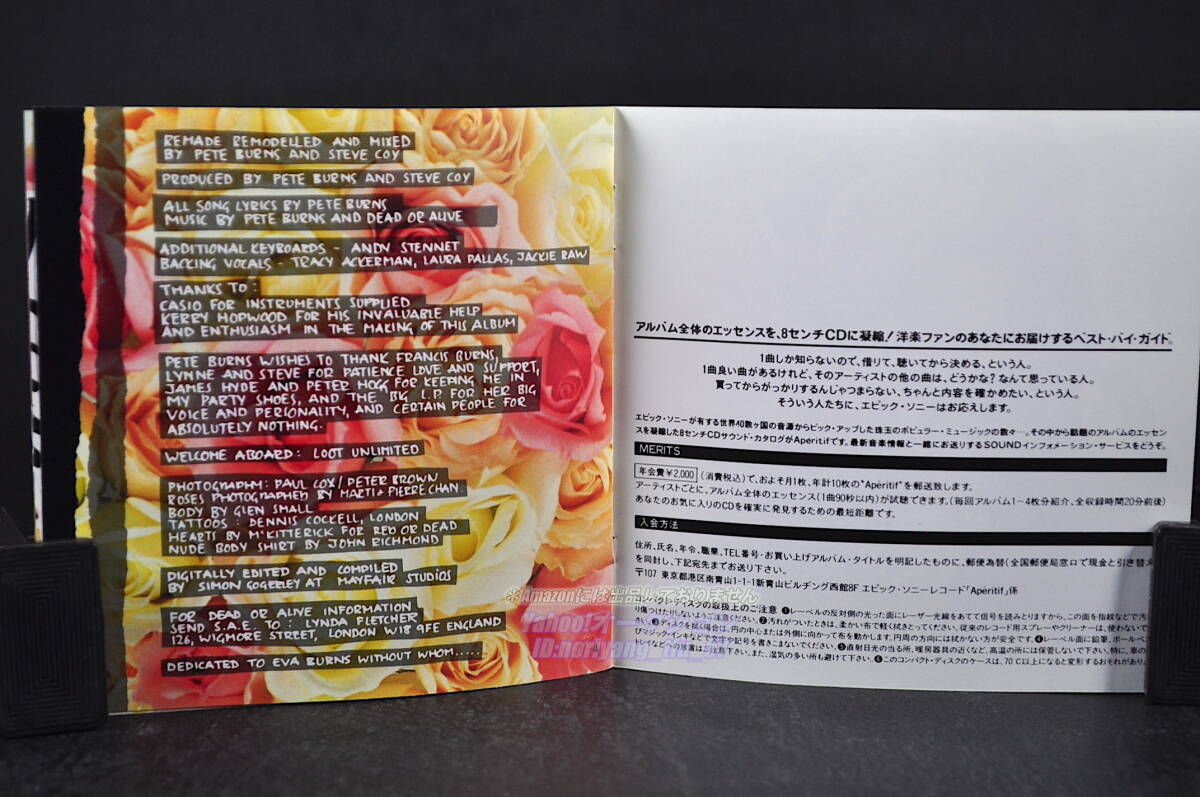 REMADE REMODELLED AND MIXED
BY PETE BURNS AND STEVE COY
PRODUCED BY PETE BURNS AND STEVE COY
ALL SONG LYRICS BY PETE BURNS
MUSIC BY PETE BURNS AND DEAD OR ALIVE
ADDITIONAL KEYBOARDS - ANDY STENNET
BACKING VOCALS - TRACY ACKERMAN, LAURA PALLAS, JACKIE RAW
THANKS TO :
CASIO FOR INSTRUMENTS SUPPLIED
KERRY HOPWOOD FOR HIS INVALUABLE HELP
AND ENTHUSIASM IN THE MAKING OF THIS ALBUM
PETE BURNS WISHES TO THANK FRANCIS BURNS,
LYNNE AND STEVE FOR PATIENCE LOVE AND SUPPORT,
JAMES HYDE AND PETER HOGG FOR KEEPING ME IN
MY PARTY SHOES, AND THE BIG L.P. FOR HER BIG
VOICE AND PERSONALITY, AND CERTAIN PEOPLE FOR
ABSOLUTELY NOTHING.
WELCOME ABOARD: LOOT UNLIMITED
PHOTOGRAPHY: PAUL COX / PETER BROWN
ROSES PHOTOGRAPHED BY MARTI & PIERRE CHAN
BODY BY GLEN SMALL
TATTOOS : DENNIS COCKELL, LONDON
HEARTS BY M'KITTERICK FOR RED OR DEAD
NUDE BODY SHIRT BY JOHN RICHMOND
DIGITALLY EDITED AND COMPILED
BY SIMON GOGERLEY AT MAYFAIR STUDIOS
FOR DEAD OR ALIVE INFORMATION
SEND S.A.E. TO : LYNDA FLETCHER
126, WIGMORE STREET, LONDON W18 9FE ENGLAND
DEDICATED TO EVA BURNS WITHOUT WHOM.....
アルバム全体のエッセンスを、8センチCDに凝縮! 洋楽ファンのあなたにお届けするベスト・バイ・ガイド。
1曲しか知らないので、借りて、聴いてから決める、という人。
1曲良い曲があるけれど、そのアーティストの他の曲は、どうかな? なんて思っている人。
買ってからがっかりするんじゃつまらない、ちゃんと内容を確かめたい、という人。
そういう人たちに、エピック・ソニーはお応えします。
エピック・ソニーが有する世界40数ヶ国の音源からピック・アップした珠玉のポピュラー・ミュージックの数々…。その中から話題のアルバムのエッセンス
を凝縮した8センチCDサウンド・カタログがApéritifです。最新音楽情報と一緒にお送りするSOUNDインフォメーション・サービスをどうぞ。
MERITS
年会費¥2,000 (消費税込)で、おおよそ月1枚、年計10枚の"Apéritif"を郵送致します。
アーティストごとに、アルバム全体のエッセンス(1曲90秒以内)が試聴できます。(毎回アルバム1~4枚分紹介、全収録時間20分前後)
あなたのお気に入りのCDを確実に発見するための最短距離です。
入会方法
住所、氏名、年令、職業、TEL番号・お買い上げアルバム・タイトルを明記したものに、郵便為替(全国郵便局窓口で現金と引き替え
を同封し、下記宛先までお送り下さい。
〒107 東京都港区南青山1-1-1新青山ビルヂング西館8F エピック・ソニーレコード「Apéritif」係
コンパクト・ディスクの取扱上のご注意 ❶レーベルの反対側の光った面にレーザー光線をあてて信号を読みとりますから、この面を指紋などで汚
り傷つけたりしないようご注意ください。❷汚れがついたときは、柔かい布で軽く拭きとってください。従来のレコード用スプレーやクリーナーは、使わないで
さい。❸ディスクを拭く場合は、円の中心または外側に向かって布を動かします。円周の方向には拭かない方が安全です。❹レーベル面に鉛筆、ボールペ
びマジック・インキなどで文字や記号を書きこまないでください。❺直射日光の当る所、暖房器具の近くなど、高温の所には保管しないで下さい。特に、車の
トレイなどへの放置はご注意下さい。また、湿気の多い所も避けて下さい。❻このコンパクト・ディスクのケースは、70℃以上になると変形するおそれがあり
※Amazonには出品しておりません